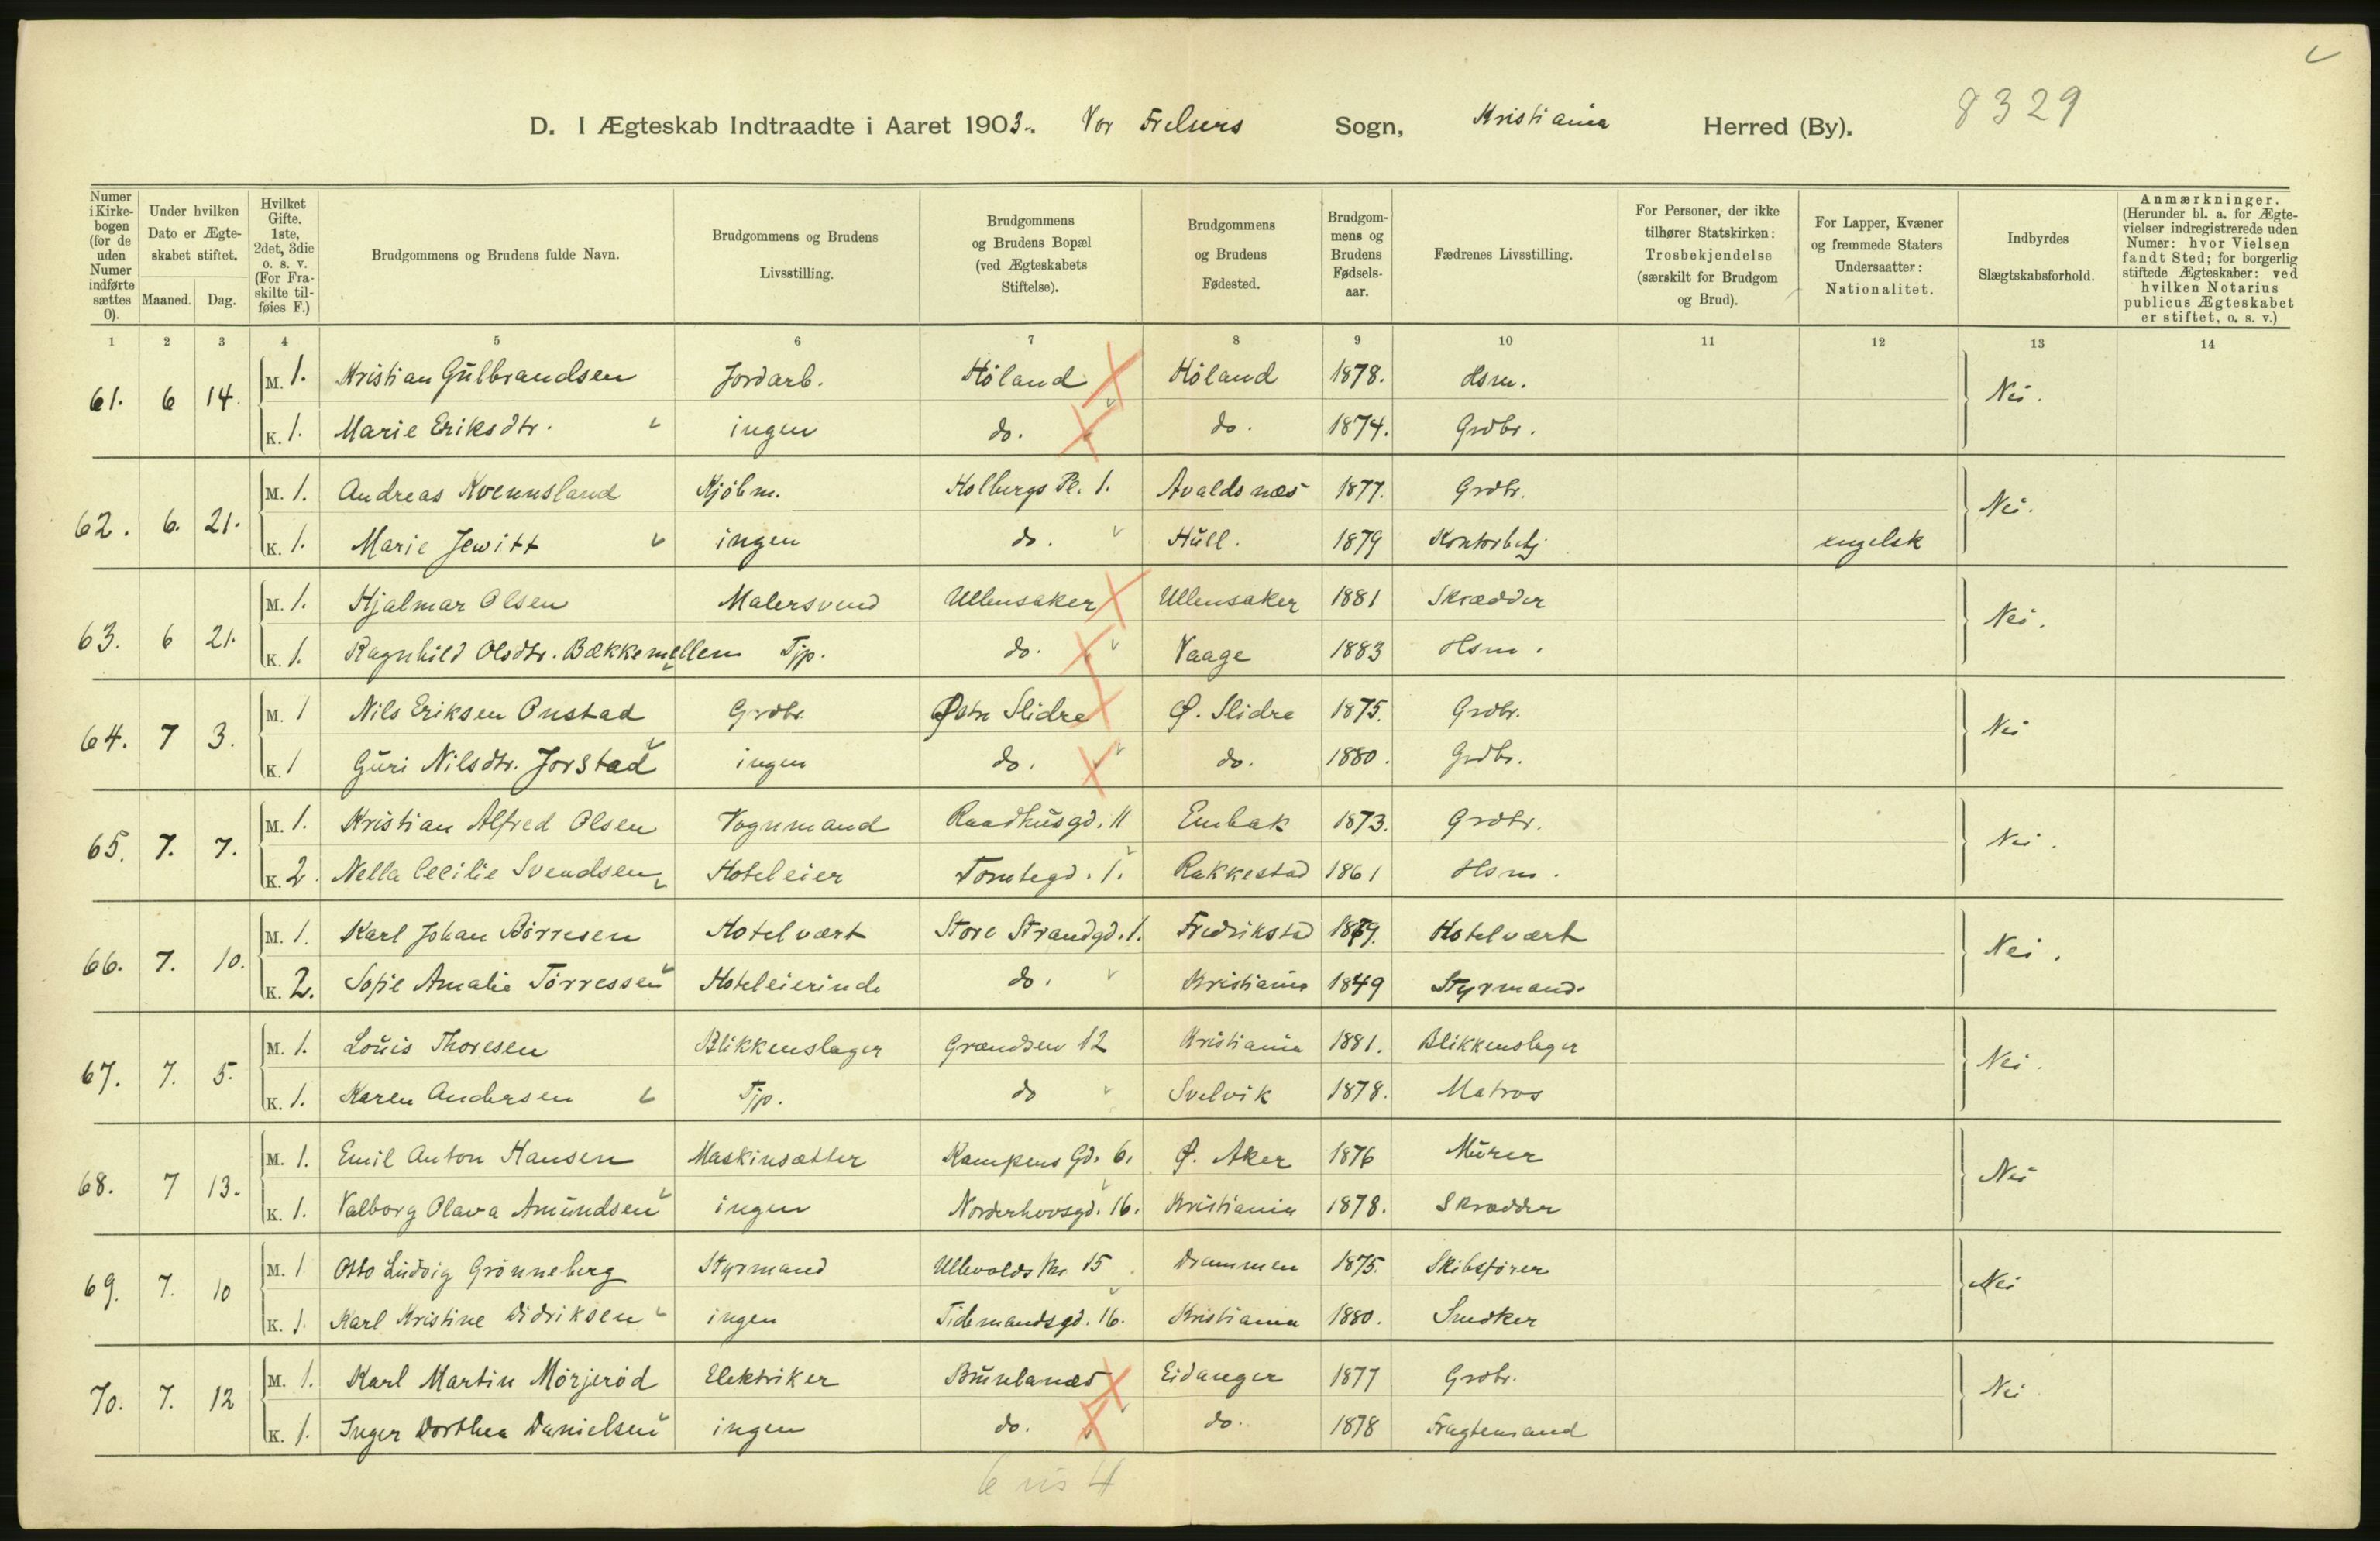 8329
D. I Ægteskab Indtraadte i Aaret 1903. Vor Frelsers Sogn, Kristiania Herred (By).
Numer i Kirkebogen (for de uden Numer indførte sættes 0). | Under hvilken Dato er Ægteskabet stiftet. Maaned. Dag. | Hvilket Gifte. 1ste, 2det, 3die o. s. v. (For Fraskilte tilføies F.) | Brudgommens og Brudens fulde Navn. | Brudgommens og Brudens Livsstilling. | Brudgommens og Brudens Bopæl (ved Ægteskabets Stiftelse). | Brudgommens og Brudens Fødested. | Brudgommens og Brudens Fødselsaar. | Fædrenes Livsstilling. | For Personer, der ikke tilhører Statskirken: Trosbekjendelse (særskilt for Brudgom og Brud). | For Lapper, Kvæner og fremmede Staters Undersaatter: Nationalitet. | Indbyrdes Slægtskabsforhold. | Anmærkninger. (Herunder bl. a. for Ægtevielser indregistrerede uden Numer: hvor Vielsen fandt Sted; for borgerlig stiftede Ægteskaber: ved hvilken Notarius publicus Ægteskabet er stiftet, o. s. v.)
1 2 3 4 5 6 7 8 9 10 11 12 13 14
61. 6 14. M. 1. Kristian Gulbrandsen Jordarb. Høland Høland 1878. Hsm. Nei.
K. 1. Marie Eriksdtr. ingen do. do. 1874. Grdbr.
62. 6. 21. M. 1. Andreas Kvennsland Kjøbm. Holbergs Pl. 1. Avaldsnæs 1877. Grdbr. Nei.
K. 1. Marie Jewitt ingen do. Hull. 1879 Kontorbetj engelsk
63. 6 21. M. 1. Hjalmar Olsen Malersvend Ullensaker Ullensaker 1881 Skrædder Nei.
K. 1. Ragnhild Olsdtr. Bækkemellem Tjp. do. Vaage 1883 Hsm.
64. 7 3. M. 1 Nils Eriksen Onstad Grdbr. Østre Slidre Ø. Slidre 1875. Grdbr. Nei
K. 1 Guri Nilsdtr. Jorstad ingen do. do. 1880. Grdbr.
65. 7. 7. M. 1. Kristian Alfred Olsen Vognmand Raadhusgd. 11 Enebak 1873. Grdbr. Nei.
K. 2. Nella Cecilie Svendsen Hoteleier Tomtegd. 1. Rakkestad 1861 Hsm.
66. 7. 10. M. 1. Karl Johan Børresen Hotelvært Store Strandgd. 1. Fredrikstad 1869. Hotelvært Nei.
K. 2. Sofie Amalie Torressen Hoteleierinde do. Kristiania 1849 Styrmand.
67. 7. 5. M. 1. Louis Thoresen Blikkenslager Grændsen 12 Kristiania 1881. Blikkenslager Nei.
K. 1. Karen Andersen Tjp. do Svelvik 1878. Matros
68. 7 13. M. 1. Emil Anton Hansen Maskinsætter Kampens Gd. 6. Ø. Aker 1876 Murer Nei
K. 1. Valborg Olava Amundsen ingen Norderhovsgd. 16. Kristiania 1878. Skrædder
69. 7. 10 M. 1 Otto Ludvig Grønneberg Styrmand Ullevoldsv. 15 Drammen 1875. Skibsfører Nei
K. 1. Karl Kristine Didriksen ingen Tidemandsgd. 16. Kristiania 1880. Snedker
70. 7. 12 M. 1. Karl Martin Mørjerød Elektriker Brunlanæs Eidanger 1877 Grdbr. Nei
K. 1. Inger Dorthea Danielsen ingen do. do. 1878 Fragtemand